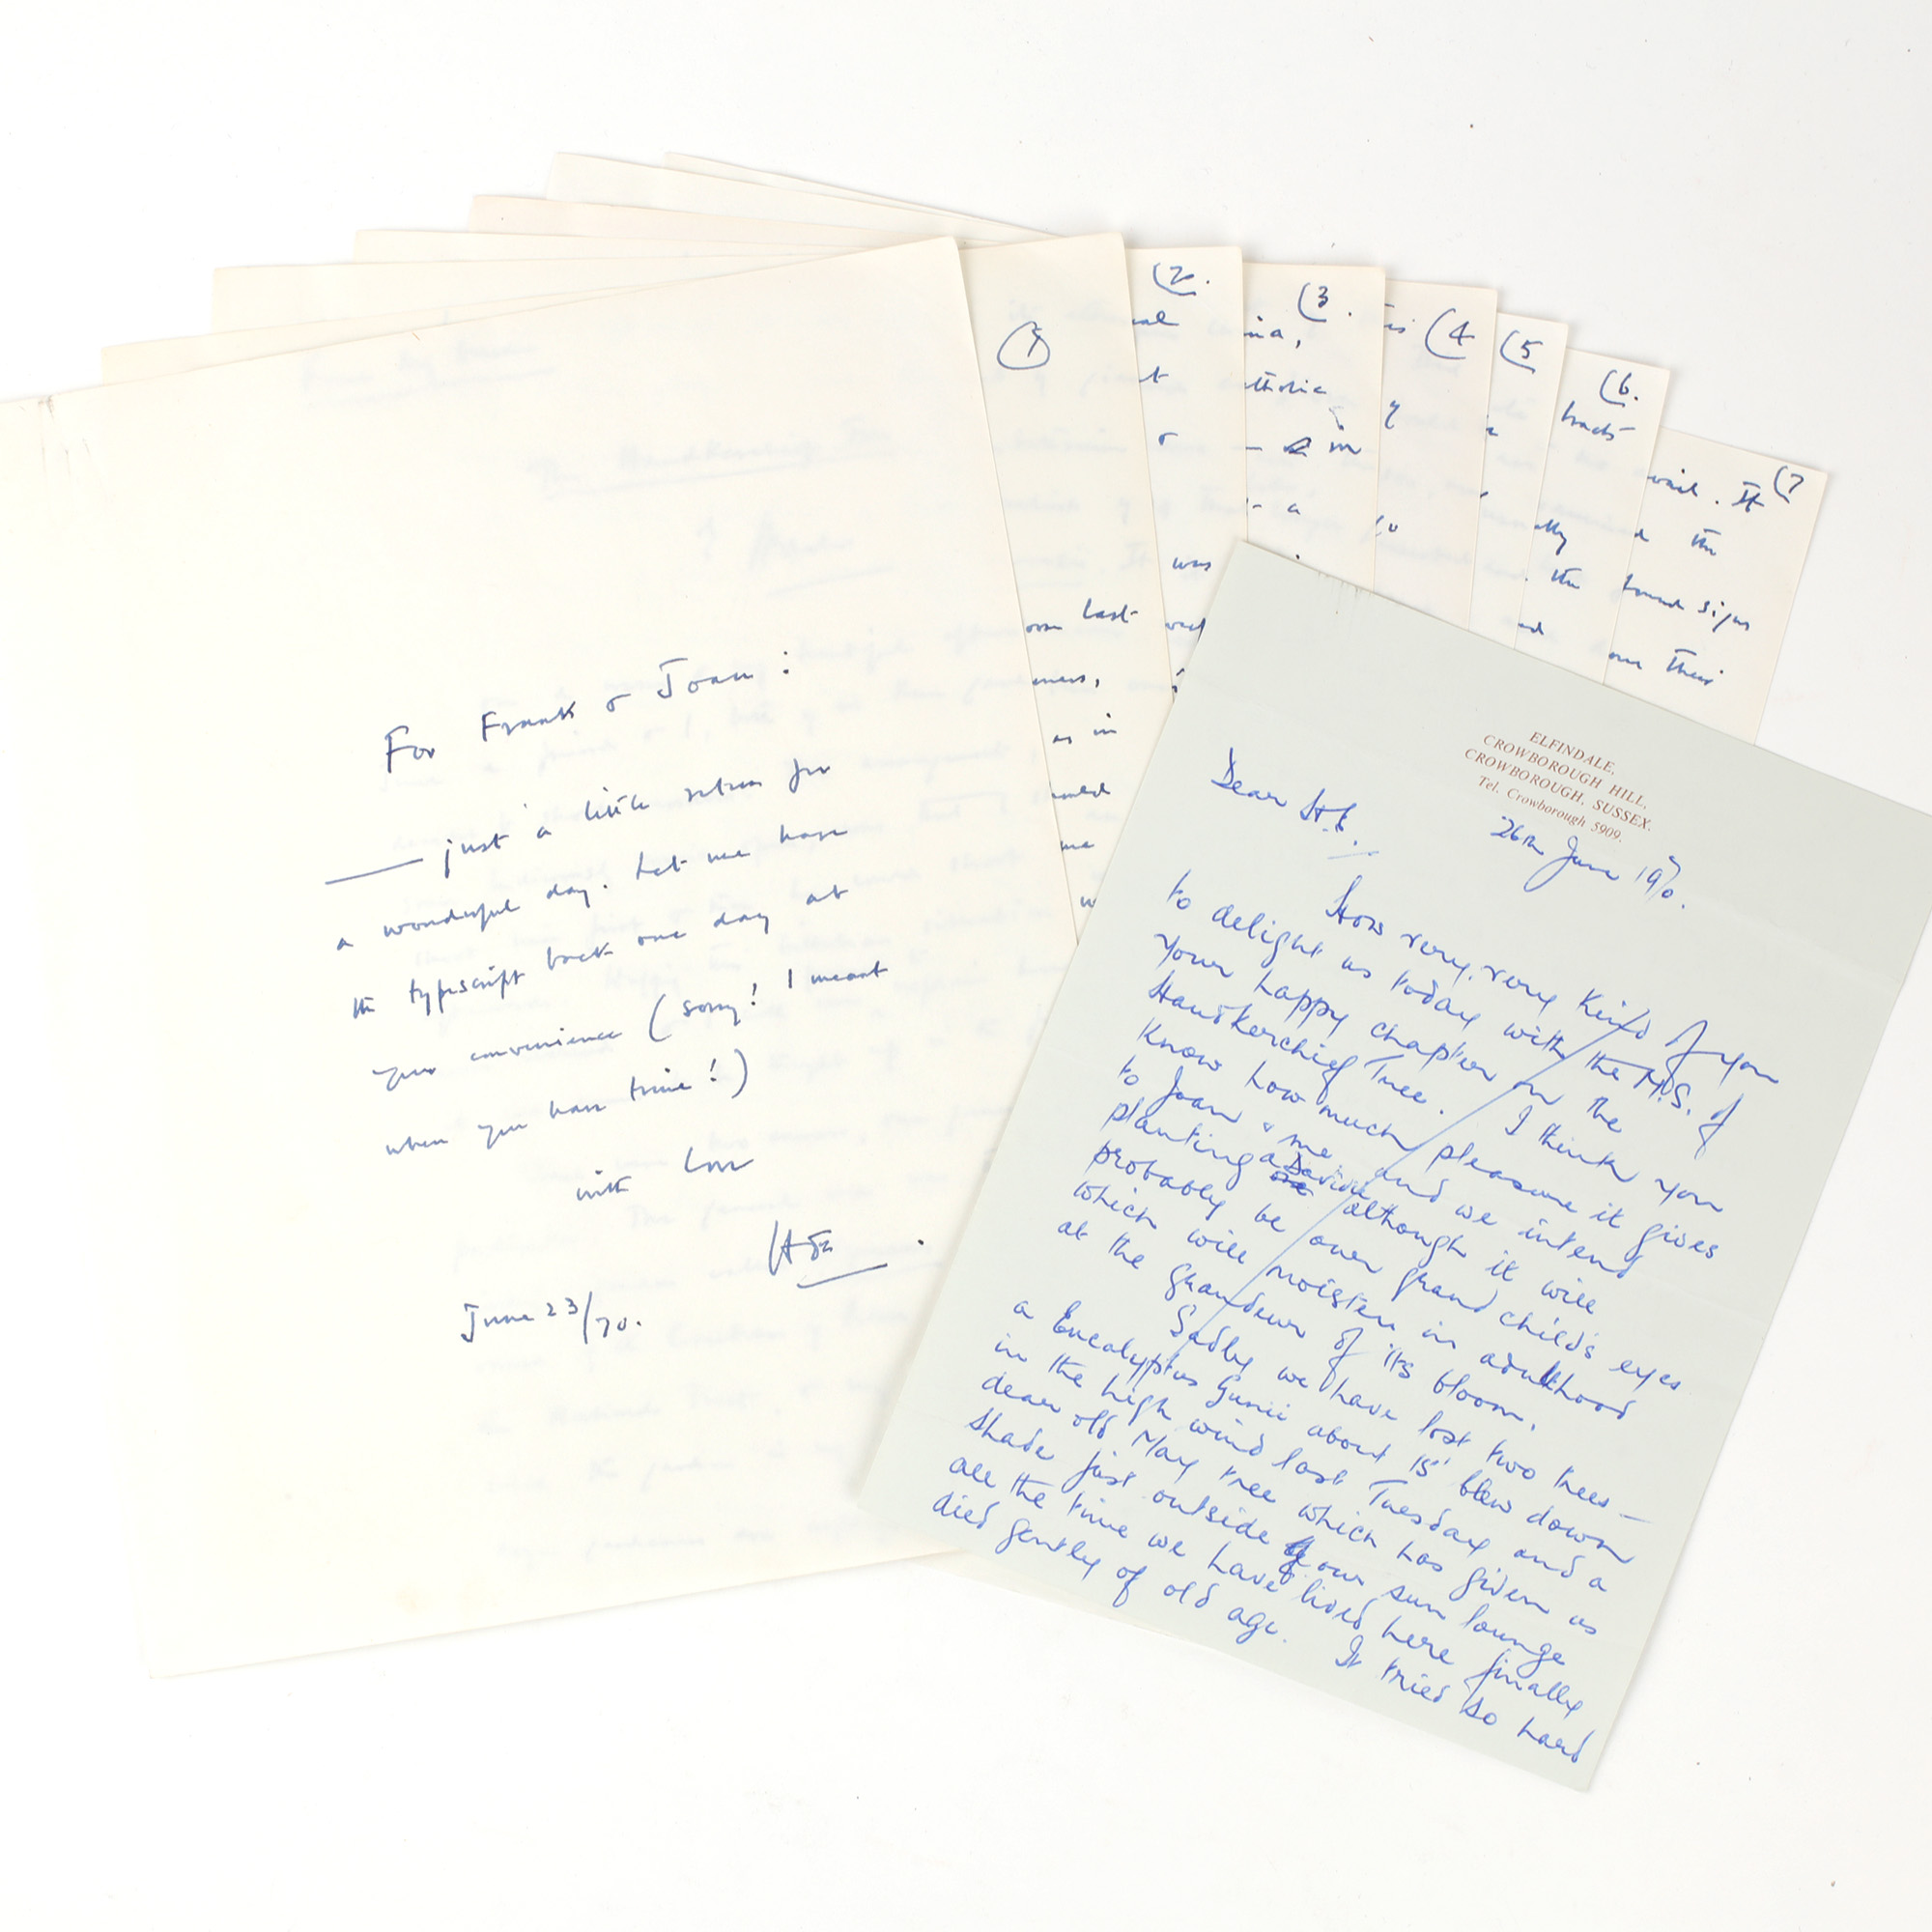 For Frank & Joan :
— just a little return for
a wonderful day. Let me have
the typescript back one day at
your convenience (sorry! I meant
when you have time!)
with Love
HEB.
June 23/70.
1
oon last
mers,
as in
me
w
(2.
al
t
&
was
(3.
ina,
atholic
— in
- a
(4
is
y
to
(5
(6.
tracts
ally
. the
(7
vail. It
d the
found signs
own their
ELFINDALE,
CROWBOROUGH HILL,
CROWBOROUGH, SUSSEX.
Tel. Crowborough 5909.
26th June 1970.
Dear H.E.
How very, very kind of you
to delight us today with the M.S. of
your happy chapter on the
Handkerchief Tree. I think you
know how much pleasure it gives
to Joan & me and we intend
planting a Davidia although it will
probably be our grand child's eyes
which will moisten in adulthood
at the grandeur of its bloom.
Sadly we have lost two trees –
a Eucalyptus Gunii about 15' blew down
in the high wind last Tuesday and a
dear old May tree which has given us
shade just outside our sun lounge
all the time we have lived here finally
died gently of old age. It tried so hard